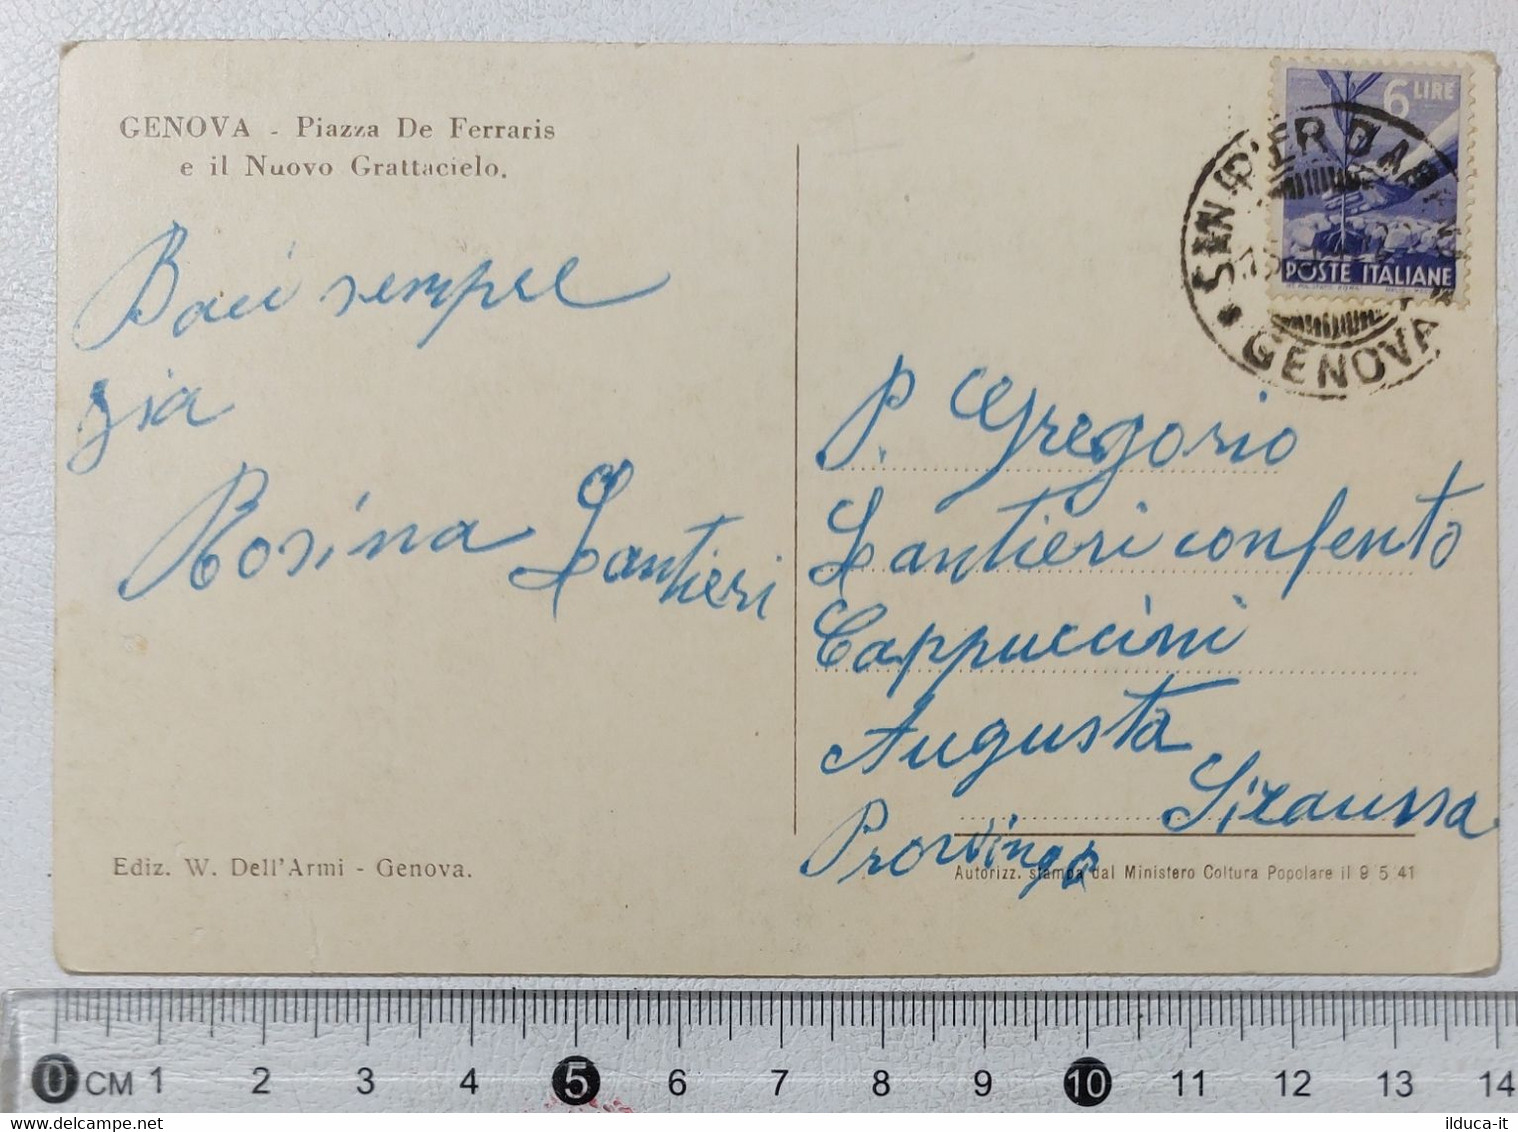 GENOVA - Piazza De Ferraris
e il Nuovo Grattacielo.
Baci sempre
zia
Rosina Lantieri
Ediz. W. Dell'Armi - Genova.
6 LIRE
POSTE ITALIANE
SANPIER D'ARENA
GENOVA
P. Gregorio
Lantieri confento
Cappuccini
Augusta
Siraussa
Provinga
Autorizz. stampa dal Ministero Coltura Popolare il 9 5 41
0 CM 1 2 3 4 5 6 7 8 9 10 11 12 13 14
ilduca-it